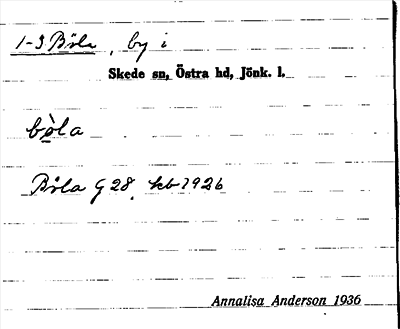 1-3 Böla, by i
Skede sn, Östra hd, Jönk. l.
bø̀la
Böla G 28. kb 1926
Annalisa Anderson 1936